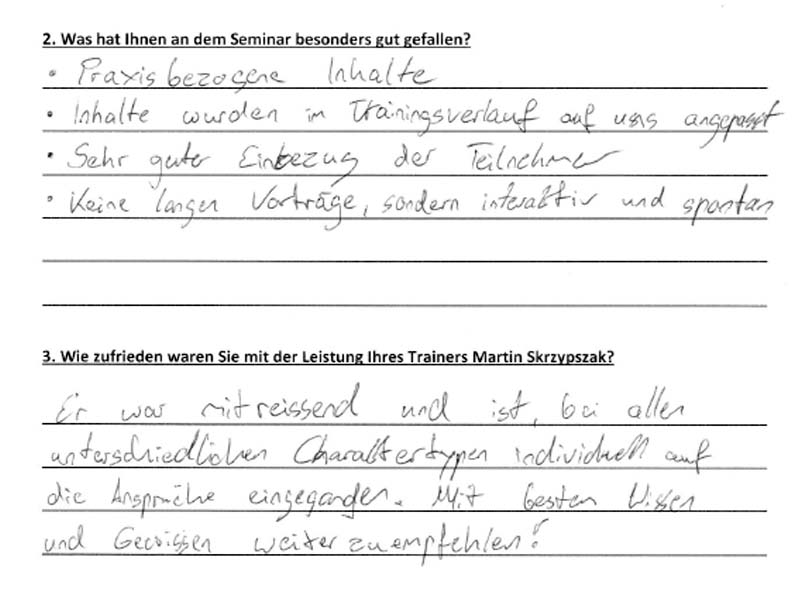 2. Was hat Ihnen an dem Seminar besonders gut gefallen?
• Praxisbezogene Inhalte
• Inhalte wurden im Trainingsverlauf auf uns angepasst
• Sehr guter Einbezug der Teilnehmer
• Keine langen Vorträge, sondern interaktiv und spontan
3. Wie zufrieden waren Sie mit der Leistung Ihres Trainers Martin Skrzypszak?
Er war mitreissend und ist, bei allen
unterschiedlichen Charaktertypen individuell auf
die Ansprüche eingegangen. Mit besten Wissen
und Gewissen weiterzuempfehlen!